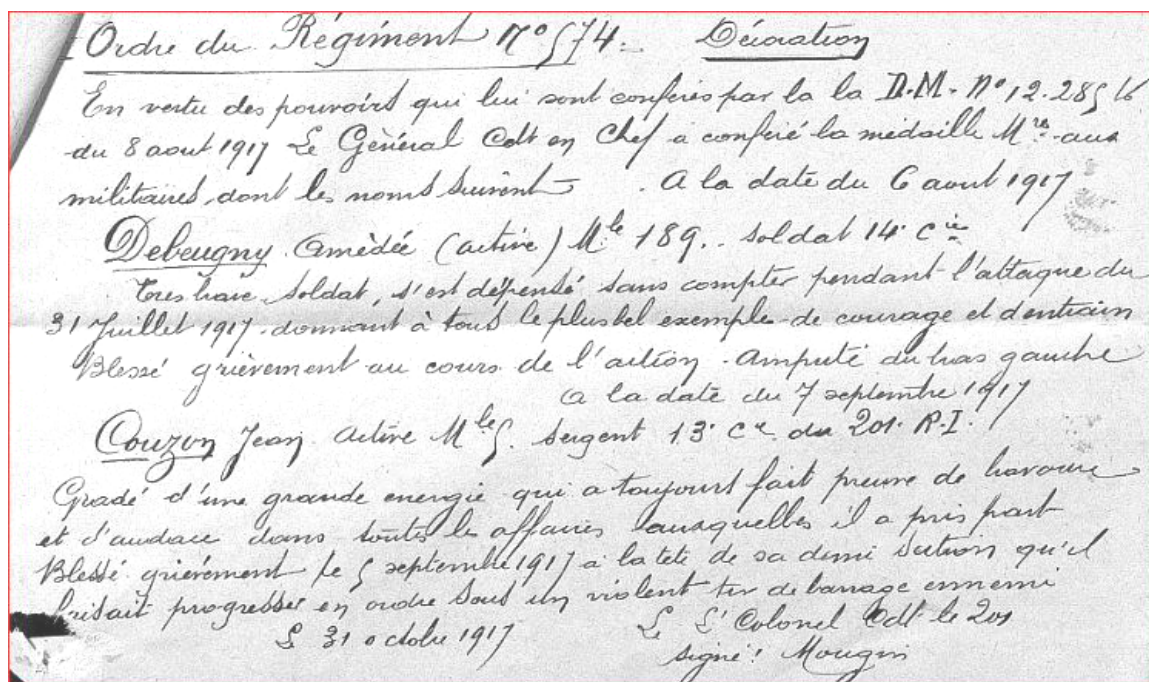 Ordre du Régiment N° 574. Décoration
En vertu des pouvoirs qui lui sont conférés par la la D.M. N° 12.285 K
du 8 aout 1917 Le Général Cdt en Chef a conféré la médaille Mre aux
militaires dont les noms suivent. A la date du 6 aout 1917
Debeugny Amédée (active) Mle 189.. soldat 14e Cie
Très brave soldat, s'est dépensé sans compter pendant l'attaque du
31 Juillet 1917 donnant à tous le plus bel exemple de courage et d'entrain
Blessé grièvement au cours de l'action. Amputé du bras gauche
A la date du 7 septembre 1917
Couzon Jean. Active Mle 5. Sergent 13e Cie du 201. R.I.
Gradé d'une grande energie qui a toujours fait preuve de bravoure
et d'audace dans toutes les affaires auxquelles il a pris part
Blessé grièvement le 5 septembre 1917 à la tête de sa demi section qu'il
faisait progresser en ordre sous un violent tir de barrage ennemi
Le 31 octobre 1917 Le Lt Colonel Cdt le 201
signé: Mougin